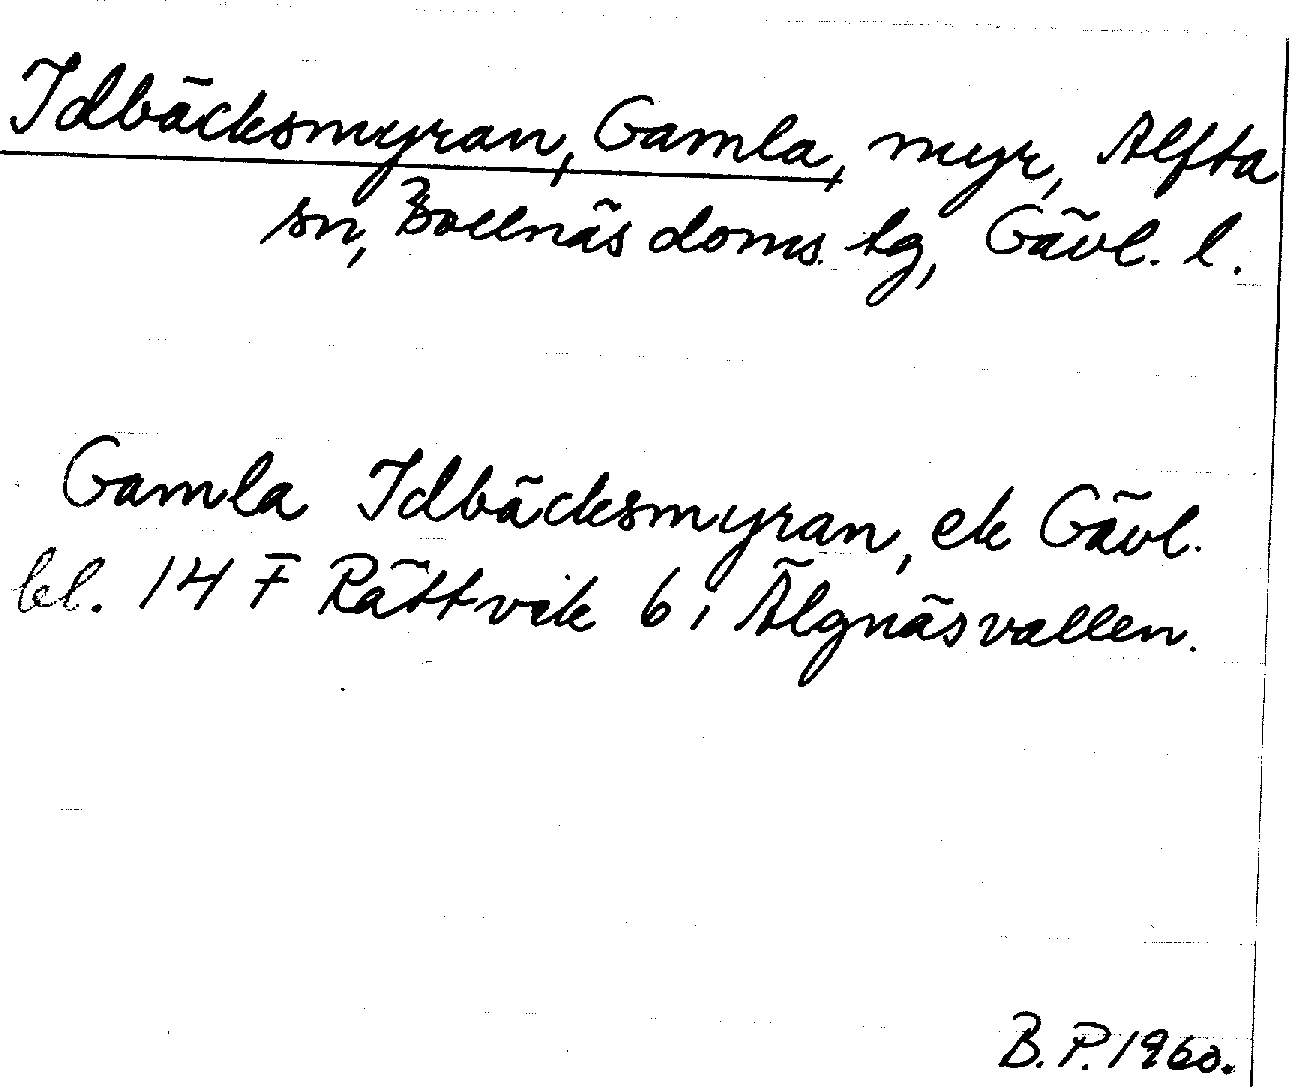 Idbäcksmyran, Gamla, myr, Alfta
sn, Bollnäs doms. tg, Gävl. l.
Gamla Idbäcksmyran, ek Gävl.
bl. 14 F Rättvik 6 i Älgnäsvallen.
B. P. 1960.